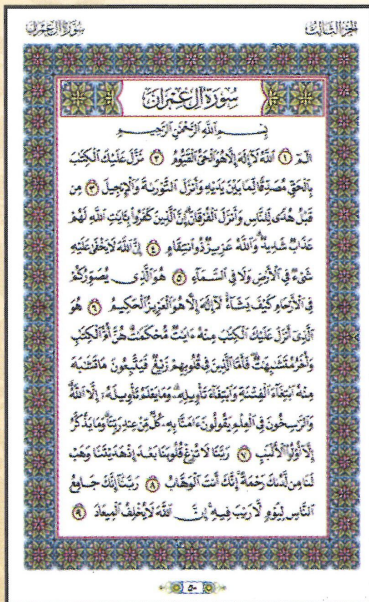 سُورَةُ آلِ عِمْرَانَ
الجُزْءُ الثَّالِثُ
سُورَةُ آلِ عِمْرَانَ
بِسْمِ اللَّهِ الرَّحْمَٰنِ الرَّحِيمِ
الٓمٓ ١ ٱللَّهُ لَآ إِلَٰهَ إِلَّا هُوَ ٱلْحَىُّ ٱلْقَيُّومُ ٢ نَزَّلَ عَلَيْكَ ٱلْكِتَٰبَ
بِٱلْحَقِّ مُصَدِّقًا لِّمَا بَيْنَ يَدَيْهِ وَأَنزَلَ ٱلتَّوْرَىٰةَ وَٱلْإِنجِيلَ ٣ مِن
قَبْلُ هُدًى لِّلنَّاسِ وَأَنزَلَ ٱلْفُرْقَانَ إِنَّ ٱلَّذِينَ كَفَرُوا۟ بِـَٔايَٰتِ ٱللَّهِ لَهُمْ
عَذَابٌ شَدِيدٌ وَٱللَّهُ عَزِيزٌ ذُو ٱنتِقَامٍ ٤ إِنَّ ٱللَّهَ لَا يَخْفَىٰ عَلَيْهِ
شَىْءٌ فِى ٱلْأَرْضِ وَلَا فِى ٱلسَّمَآءِ ٥ هُوَ ٱلَّذِى يُصَوِّرُكُمْ
فِى ٱلْأَرْحَامِ كَيْفَ يَشَآءُ لَآ إِلَٰهَ إِلَّا هُوَ ٱلْعَزِيزُ ٱلْحَكِيمُ ٦ هُوَ
ٱلَّذِىٓ أَنزَلَ عَلَيْكَ ٱلْكِتَٰبَ مِنْهُ ءَايَٰتٌ مُّحْكَمَٰتٌ هُنَّ أُمُّ ٱلْكِتَٰبِ
وَأُخَرُ مُتَشَٰبِهَٰتٌ فَأَمَّا ٱلَّذِينَ فِى قُلُوبِهِمْ زَيْغٌ فَيَتَّبِعُونَ مَا تَشَٰبَهَ
مِنْهُ ٱبْتِغَآءَ ٱلْفِتْنَةِ وَٱبْتِغَآءَ تَأْوِيلِهِۦ وَمَا يَعْلَمُ تَأْوِيلَهُۥٓ إِلَّا ٱللَّهُ
وَٱلرَّٰسِخُونَ فِى ٱلْعِلْمِ يَقُولُونَ ءَامَنَّا بِهِۦ كُلٌّ مِّنْ عِندِ رَبِّنَا وَمَا يَذَّكَّرُ
إِلَّآ أُو۟لُوا۟ ٱلْأَلْبَٰبِ ٧ رَبَّنَا لَا تُزِغْ قُلُوبَنَا بَعْدَ إِذْ هَدَيْتَنَا وَهَبْ
لَنَا مِن لَّدُنكَ رَحْمَةً إِنَّكَ أَنتَ ٱلْوَهَّابُ ٨ رَبَّنَآ إِنَّكَ جَامِعُ
ٱلنَّاسِ لِيَوْمٍ لَّا رَيْبَ فِيهِ إِنَّ ٱللَّهَ لَا يُخْلِفُ ٱلْمِيعَادَ ٩
٥٠